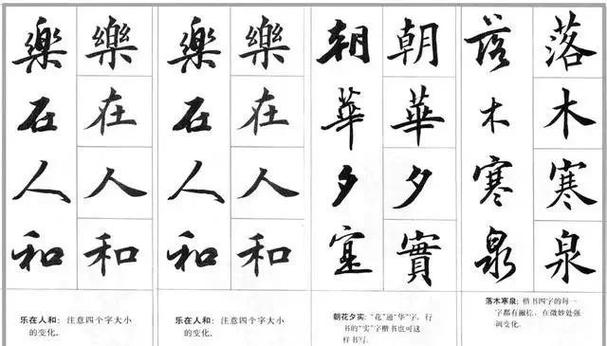 樂在人和
樂在人和
乐在人和：注意四个字大小
的变化。
樂在人和
樂在人和
乐在人和：注意四个字大小
的变化。
朝華夕寔
朝華夕實
朝花夕实：“花”通“华”字，行
书的“实”字楷书也可这
样书写。
落木寒泉
落木寒泉
落木寒泉：楷书四字的每一
字都有撇捺，在微妙处强
调变化。